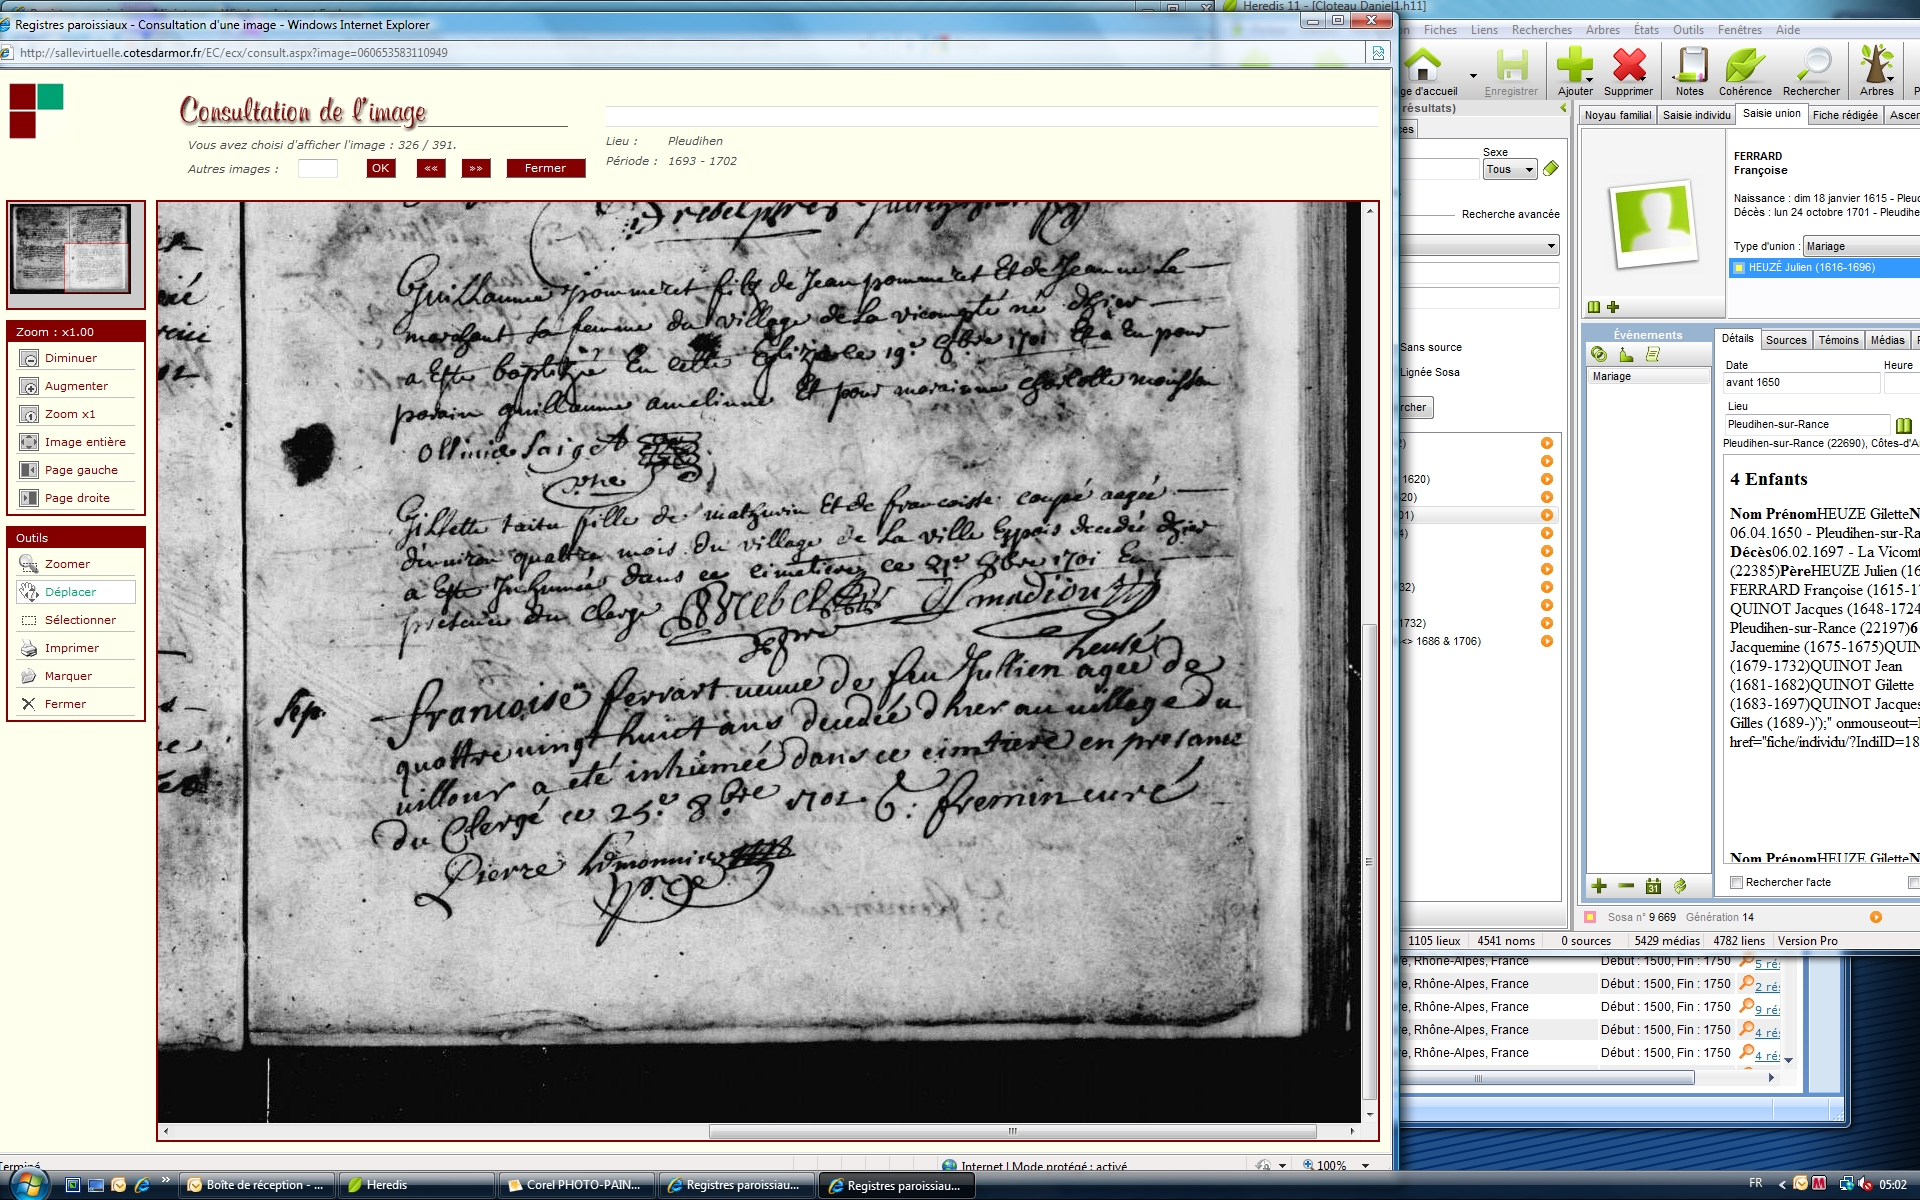 Registres paroissiaux - Consultation d'une image - Windows Internet Explorer
http://sallevirtuelle.cotesdarmor.fr/EC/ecx/consult.aspx?image=060653583110949
Consultation de l'image
Vous avez choisi d'afficher l'image : 326 / 391.
Autres images :
OK
««
»»
Fermer
Lieu : Pleudihen
Période : 1693 - 1702
Zoom : x1.00
Diminuer
Augmenter
Zoom x1
Image entière
Page gauche
Page droite
Outils
Zoomer
Déplacer
Sélectionner
Imprimer
Marquer
Fermer
Guillaume pommeret fils de Jean pommeret Et de Jeanne Le
marchant sa femme du village de la vicompté né dhier
a Esté baptizé En cette Eglize le 19e 8bre 1701 Et a Eu pour
parain guillaume amelinne Et pour maraine charlotte moisson
Gillette taitu fille de mathurin Et de francoisse coupé aagée
dennviron quattre mois du village de La ville decedée dhier
a Esté Inhumée dans ce cimetiere ce 21e 8bre 1701 En
presence du Clergé
Sep.
heusé
francoise ferrart veuve de feu Jullien agee de
quattre vingt huict ans decedée dhier au village du
villour a eté inhumée dans ce cimtiere en presance
du Clergé ce 25e 8bre 1701 G: fremin curé
Pierre
Terminé
Internet | Mode protégé : activé
100%
Heredis 11 - [Cloteau Daniel1.h11]
Fiches Liens Recherches Arbres États Outils Fenêtres Aide
ge d'accueil
Enregistrer
Ajouter
Supprimer
Notes
Cohérence
Rechercher
Arbres
résultats)
Sexe
Tous
Recherche avancée
Sans source
Lignée Sosa
rcher
1620)
1732)
<> 1686 & 1706)
Noyau familial
Saisie individu
Saisie union
Fiche rédigée
Ascen
FERRARD
Françoise
Naissance : dim 18 janvier 1615 - Pleud
Décès : lun 24 octobre 1701 - Pleudihe
Type d'union : Mariage
HEUZÉ Julien (1616-1696)
Événements
Mariage
Détails
Sources
Témoins
Médias
Date
Heure
avant 1650
Lieu
Pleudihen-sur-Rance
Pleudihen-sur-Rance (22690), Côtes-d'A
4 Enfants
Nom PrénomHEUZE GiletteN
06.04.1650 - Pleudihen-sur-Ra
Décès06.02.1697 - La Vicomt
(22385)PèreHEUZE Julien (16
FERRARD Françoise (1615-17
QUINOT Jacques (1648-1724
Pleudihen-sur-Rance (22197)6
Jacquemine (1675-1675)QUIN
(1679-1732)QUINOT Jean
(1681-1682)QUINOT Gilette
(1683-1697)QUINOT Jacques
Gilles (1689-)');" onmouseout=
href="fiche/individu/?IndiID=18
Nom PrénomHEUZE GiletteN
Rechercher l'acte
Sosa n° 9 669 Génération 14
1105 lieux 4541 noms 0 sources 5429 médias 4782 liens Version Pro
e, Rhône-Alpes, France Début : 1500, Fin : 1750 5 ré
e, Rhône-Alpes, France Début : 1500, Fin : 1750 2 ré
e, Rhône-Alpes, France Début : 1500, Fin : 1750 9 ré
e, Rhône-Alpes, France Début : 1500, Fin : 1750 4 ré
e, Rhône-Alpes, France Début : 1500, Fin : 1750 4 ré
Boîte de réception - ...
Heredis
Corel PHOTO-PAIN...
Registres paroissiau...
Registres paroissiau...
FR
05:02